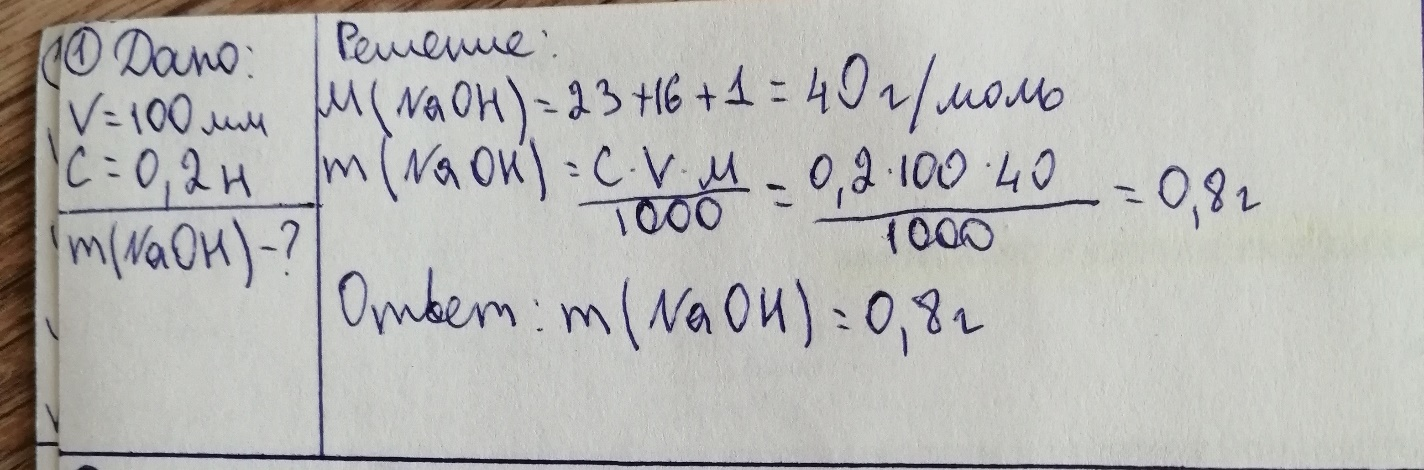 ① Дано:
V=100 мл
C=0,2 н
m(NaOH)-?
Решение:
M(NaOH)=23+16+1=40 г/моль
m(NaOH)=C·V·M/1000=0,2·100·40/1000=0,8 г
Ответ: m(NaOH)=0,8 г